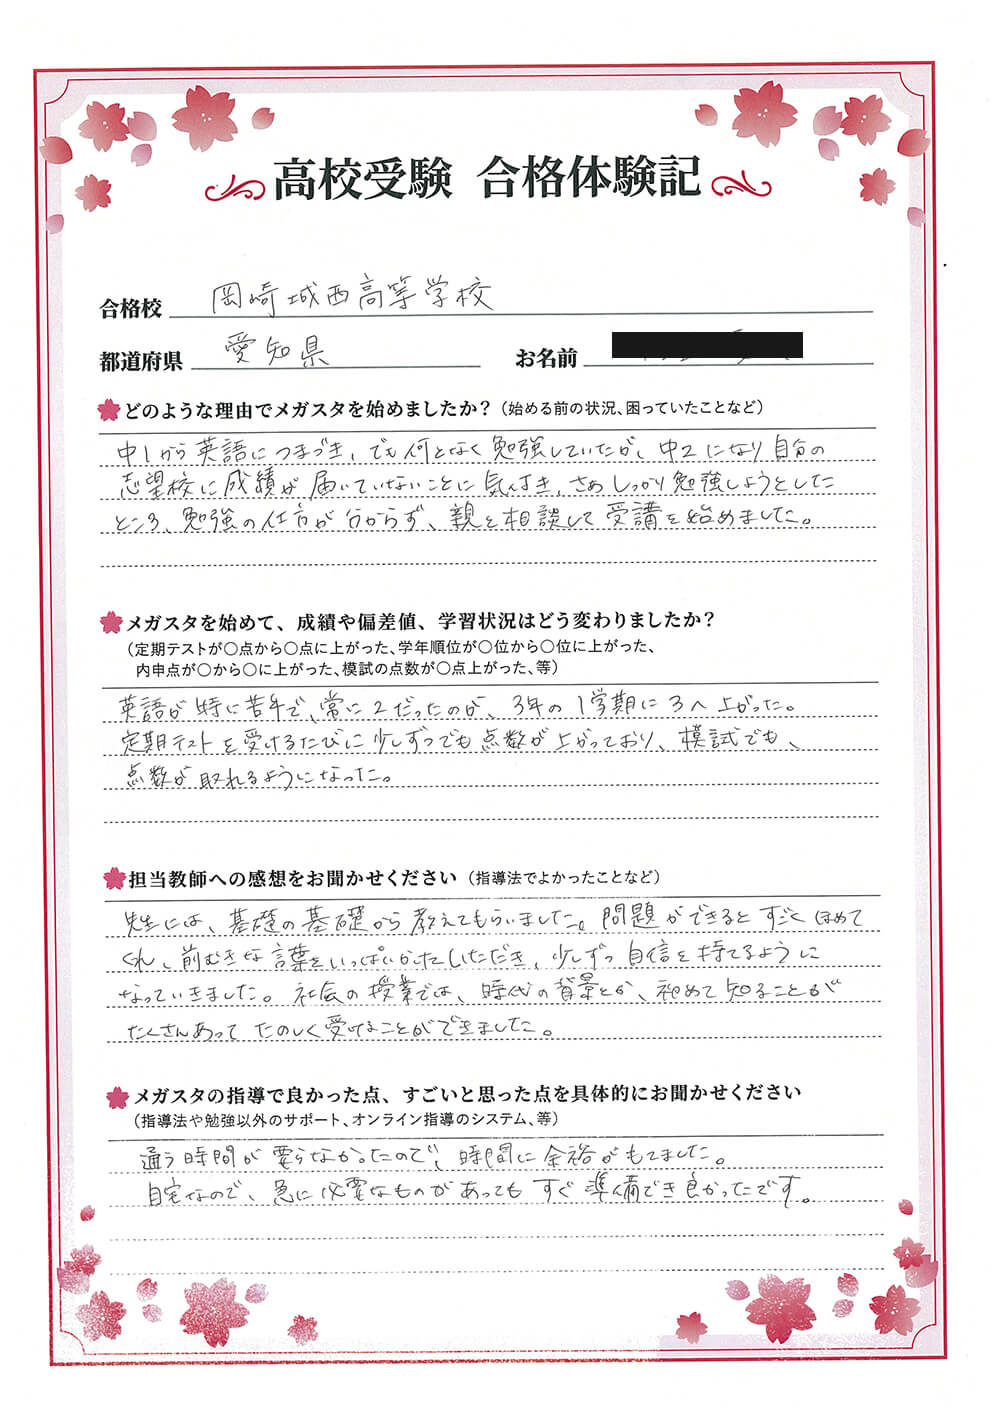 高校受験 合格体験記
合格校 岡崎城西高等学校
都道府県 愛知県 お名前
どのような理由でメガスタを始めましたか？（始める前の状況、困っていたことなど）
中1から英語につまづき、でも何となく勉強していたが、中2になり自分の
志望校に成績が届いていないことに気付き、さあしっかり勉強しようとした
ところ、勉強の仕方が分からず、親と相談して受講を始めました。
メガスタを始めて、成績や偏差値、学習状況はどう変わりましたか？
（定期テストが〇点から〇点に上がった、学年順位が〇位から〇位に上がった、
内申点が〇から〇に上がった、模試の点数が〇点上がった、等）
英語が特に苦手で、常に2だったのが、3年の1学期に3へ上がった。
定期テストを受けるたびに少しずつでも点数が上がっており、模試でも、
点数が取れるようになった。
担当教師への感想をお聞かせください（指導法でよかったことなど）
先生には、基礎の基礎から教えてもらいました。問題ができるとすごくほめて
くれ、前むきな言葉をいっぱいかけていただき、少しずつ自信を持てるように
なっていきました。社会の授業では、時代の背景とか、初めて知ることが
たくさんあってたのしく受けることができました。
メガスタの指導で良かった点、すごいと思った点を具体的にお聞かせください
（指導法や勉強以外のサポート、オンライン指導のシステム、等）
通う時間が要らなかったので、時間に余裕がもてました。
自宅なので、急に必要なものがあってもすぐ準備でき良かったです。